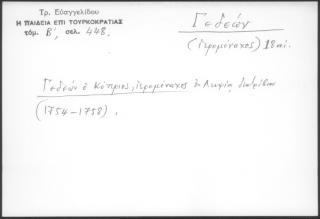 Τρ. Εὐαγγελίδου
Η ΠΑΙΔΕΙΑ ΕΠΙ ΤΟΥΡΚΟΚΡΑΤΙΑΣ
τόμ. Β΄, σελ. 448.
Γεδεών
(ἱερομόναχος) 18 αἰ.
Γεδεών ὁ Κύπριος, ἱερομόναχος ἐν Λειψίᾳ διατρίβων
(1754-1758).